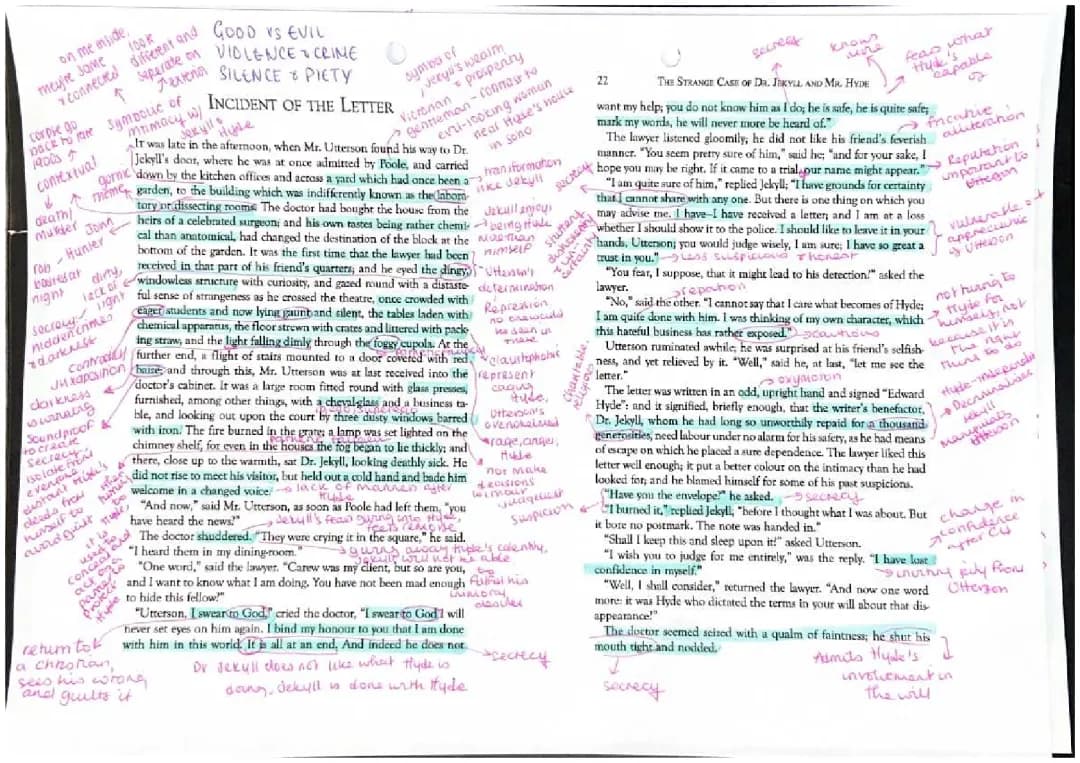 GOOD VS EVIL
VIOLENCE & CRIME
SILENCE & PIETY
on the inside,
maybe same
& connected
look
different and
separate on
exterior
symbol of
Jekyll's wealth
& prosperity
Victorian
gentleman - contrast to
evil-looking woman
near Hyde's house
in Soho
symbolic of
intimacy w/
Jekyll &
Hyde
INCIDENT OF THE LETTER
It was late in the afternoon, when Mr. Utterson found his way to Dr.
Jekyll's door, where he was at once admitted by Poole, and carried
down by the kitchen offices and across a yard which had once been a
garden, to the building which was indifferently known as the labora-
tory or dissecting rooms. The doctor had bought the house from the
heirs of a celebrated surgeon; and his own tastes being rather chemi-
cal than anatomical, had changed the destination of the block at the
bottom of the garden. It was the first time that the lawyer had been
received in that part of his friend's quarters; and he eyed the dingy,
windowless structure with curiosity, and gazed round with a distaste-
ful sense of strangeness as he crossed the theatre, once crowded with
eager students and now lying gaunt and silent, the tables laden with
chemical apparatus, the floor strewn with crates and littered with pack-
ing straw, and the light falling dimly through the foggy cupola. At the
further end, a flight of stairs mounted to a door covered with red
baize; and through this, Mr. Utterson was at last received into the
doctor's cabinet. It was a large room fitted round with glass presses,
furnished, among other things, with a cheval-glass and a business ta-
ble, and looking out upon the court by three dusty windows barred
with iron. The fire burned in the grate; a lamp was set lighted on the
chimney shelf, for even in the houses the fog began to lie thickly; and
there, close up to the warmth, sat Dr. Jekyll, looking deathly sick. He
did not rise to meet his visitor, but held out a cold hand and bade him
welcome in a changed voice.
"And now," said Mr. Utterson, as soon as Poole had left them, "you
have heard the news?"
The doctor shuddered. "They were crying it in the square," he said.
"I heard them in my dining-room."
"One word," said the lawyer. "Carew was my client, but so are you,
and I want to know what I am doing. You have not been mad enough
to hide this fellow?"
"Utterson, I swear to God," cried the doctor, "I swear to God I will
never set eyes on him again. I bind my honour to you that I am done
with him in this world. It is all at an end. And indeed he does not
contextual
gothic
theme
death/
murder
John
Hunter
rob
bodies at
night
dirty,
lack of
light
secrecy -
hidden crimes
& darkness
juxtaposition
darkness
is winning
soundproof
to create
secrecy
transformation
like Jekyll
Jekyll enjoys
being Hyde
more than
himself
Utterson's
determination
Repression
claustrophobic
represent
caging
Hyde,
Utterson's
overwhelmed
rage, anger,
Hyde
not make
decisions
without
judgement
lack of manners after
Hyde
Jekyll's fear going into Hyde,
feels remorse
secrecy
return to
a christian,
sees his wrong
and guilts it
Dr Jekyll does not like what Hyde is
doing, Jekyll is done with Hyde
secrecy
knows
more
fears what
Hyde's
capable
of
22 THE STRANGE CASE OF DR. JEKYLL AND MR. HYDE
want my help; you do not know him as I do; he is safe, he is quite safe;
mark my words, he will never more be heard of."
The lawyer listened gloomily; he did not like his friend's feverish
manner. "You seem pretty sure of him," said he; "and for your sake, I
hope you may be right. If it came to a trial, your name might appear."
"I am quite sure of him," replied Jekyll; "I have grounds for certainty
that I cannot share with any one. But there is one thing on which you
may advise me. I have—I have received a letter; and I am at a loss
whether I should show it to the police. I should like to leave it in your
hands, Utterson; you would judge wisely, I am sure; I have so great a
trust in you."
less suspicious & honest
"You fear, I suppose, that it might lead to his detection?" asked the
lawyer.
"No," said the other. "I cannot say that I care what becomes of Hyde;
I am quite done with him. I was thinking of my own character, which
this hateful business has rather exposed."
cautious
Utterson ruminated awhile; he was surprised at his friend's selfish-
ness, and yet relieved by it. "Well," said he, at last, "let me see the
letter."
oxymoron
The letter was written in an odd, upright hand and signed "Edward
Hyde": and it signified, briefly enough, that the writer's benefactor,
Dr. Jekyll, whom he had long so unworthily repaid for a thousand
generosities, need labour under no alarm for his safety, as he had means
of escape on which he placed a sure dependence. The lawyer liked this
letter well enough; it put a better colour on the intimacy than he had
looked for; and he blamed himself for some of his past suspicions.
"Have you the envelope?" he asked.
secrecy
"I burned it," replied Jekyll, "before I thought what I was about. But
it bore no postmark. The note was handed in."
"Shall I keep this and sleep upon it?" asked Utterson.
"I wish you to judge for me entirely," was the reply. "I have lost
confidence in myself."
"Well, I shall consider," returned the lawyer. "And now one word
more: it was Hyde who dictated the terms in your will about that dis-
appearance?"
The doctor seemed seized with a qualm of faintness; he shut his
mouth tight and nodded.
fricative
alliteration
Reputation
important to
Utterson
secrecy
vulnerable &
appreciative
of Utterson
nothing to
Hyde for
himself, not
because it is
the right
thing to do
charitable,
religious
manipulates
Utterson
suspicion
change in
confidence
after CM
inviting pity from
Utterson
secrecy
Admits Hyde's
involvement in
the will